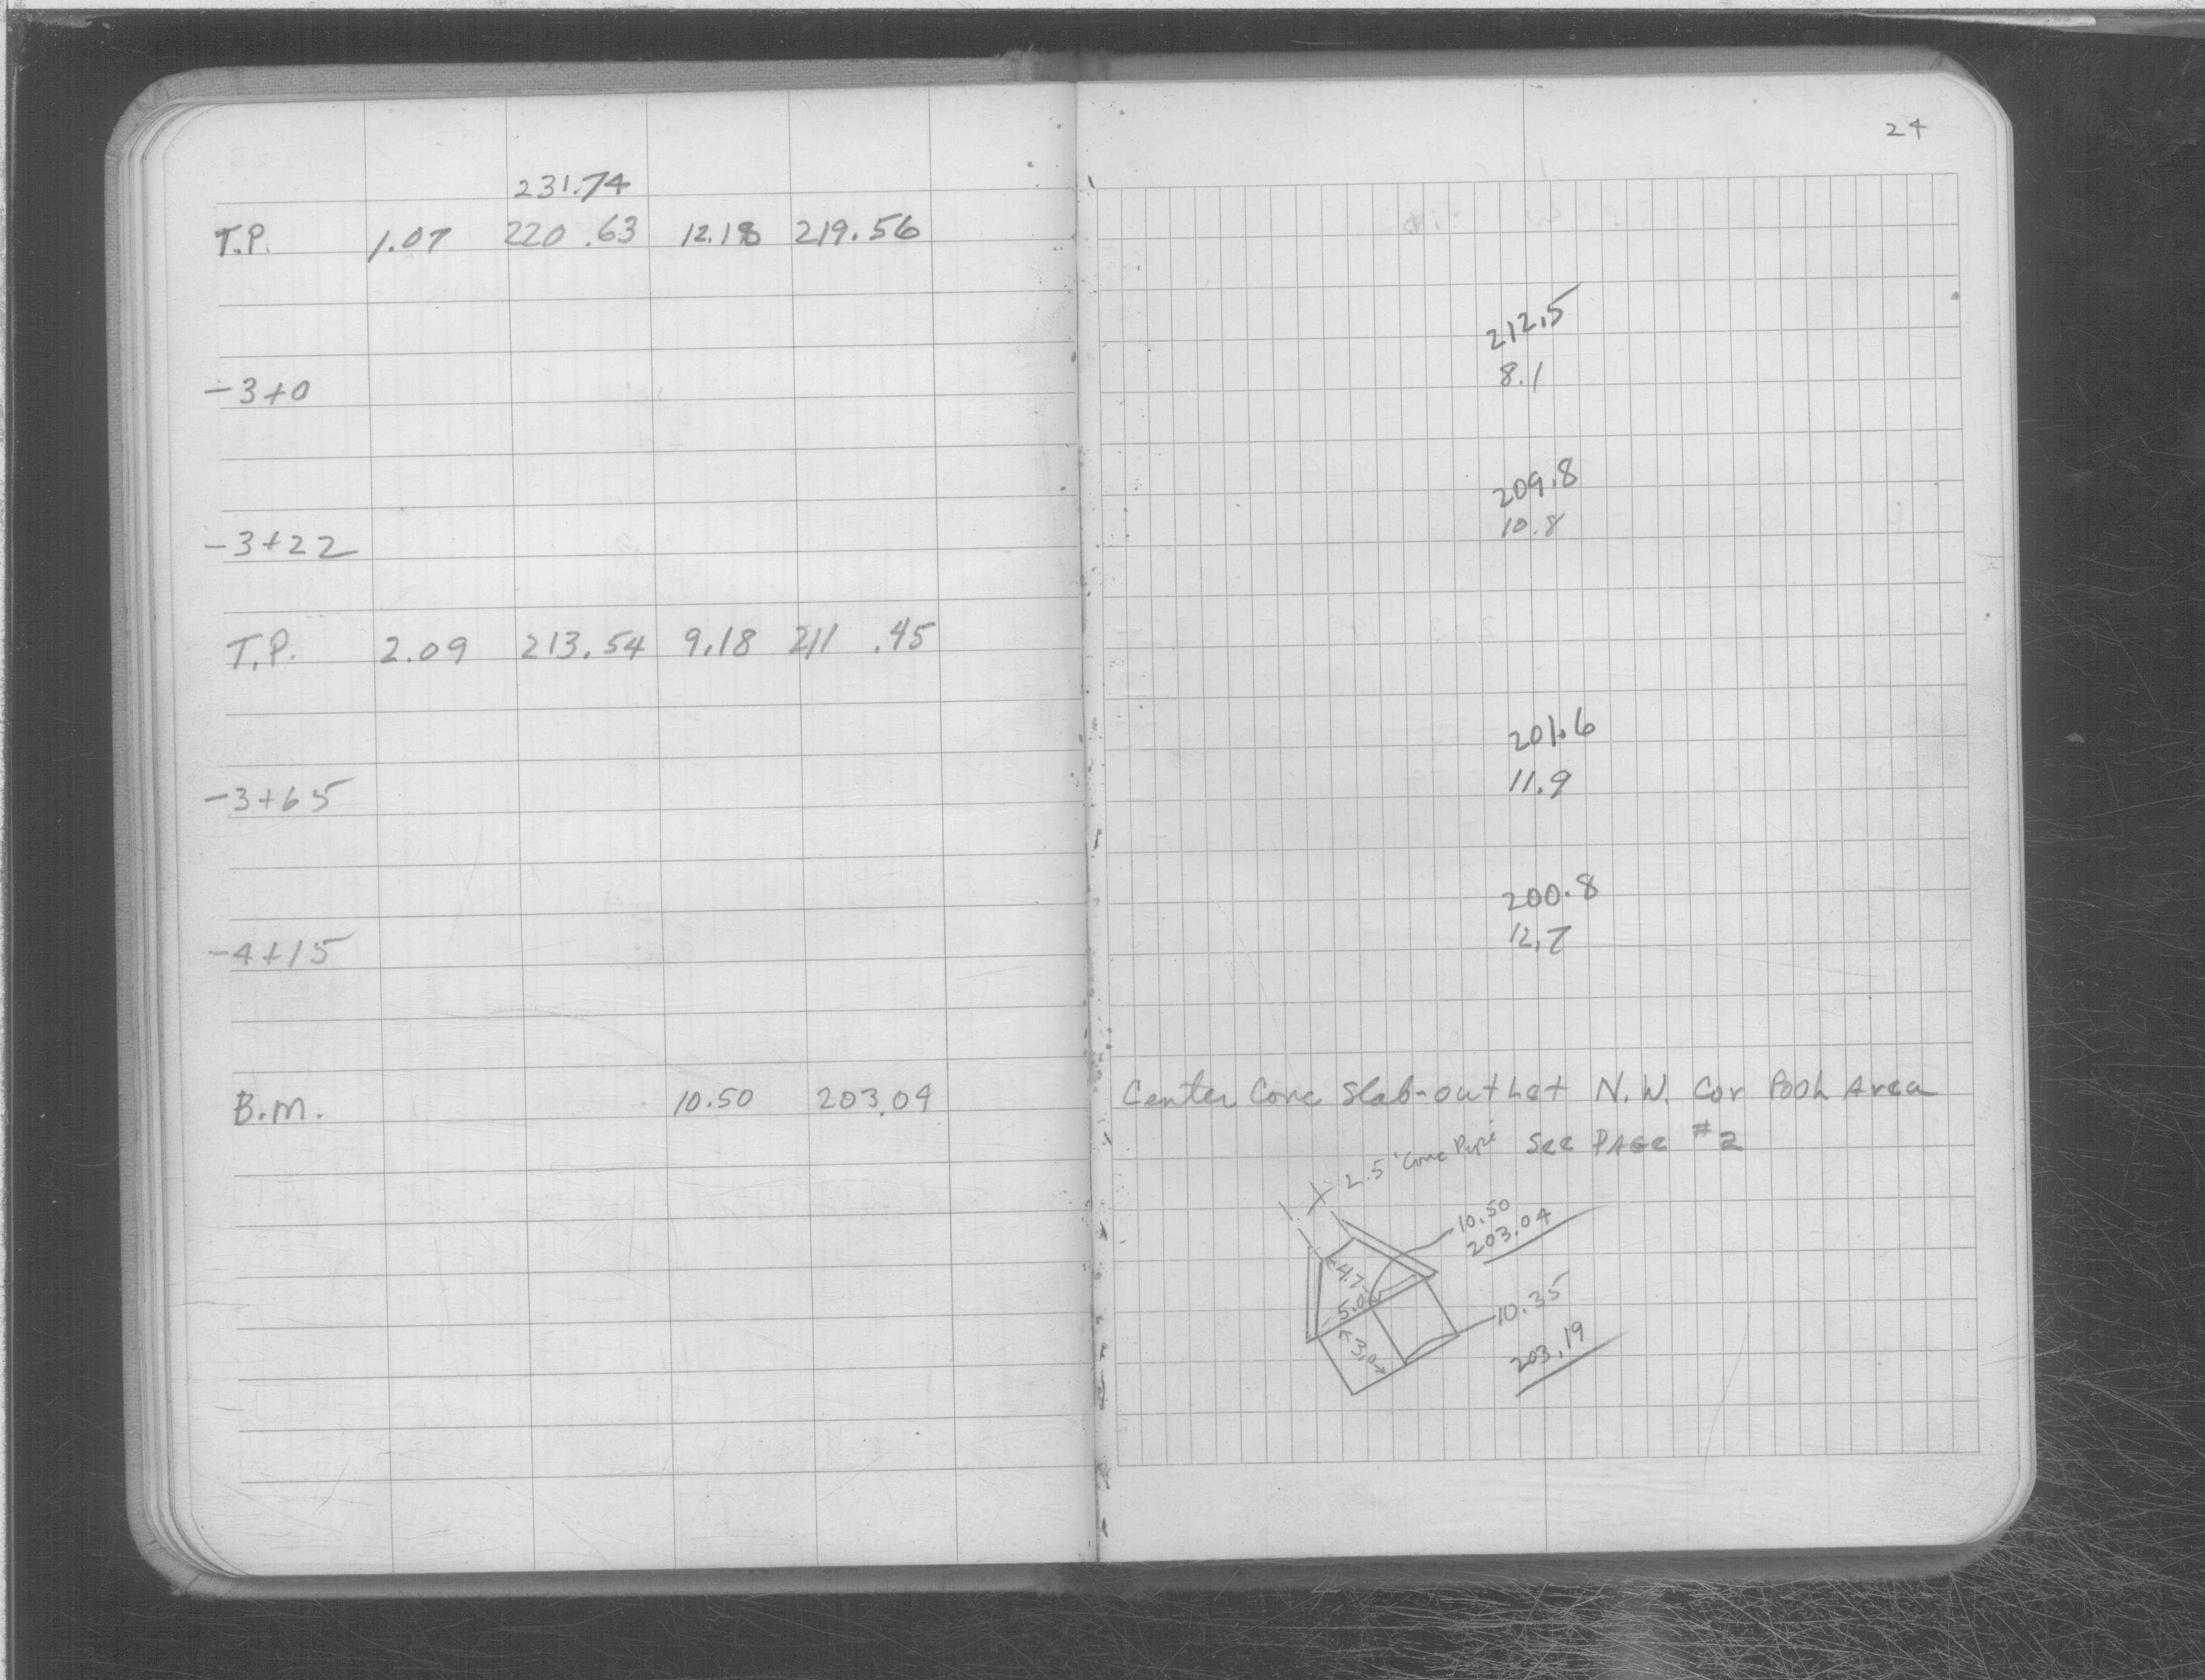 231.74
T.P. 1.07 220.63 12.18 219.56
-3+0
-3+22
T.P. 2.09 213.54 9.18 211.45
-3+65
-4+15
B.M. 10.50 203.04
24
212.5
8.1
209.8
10.8
201.6
11.9
200.8
12.7
Center Conc Slab-outLet N.W. Cor PooL Area
See PAGE #2
2.5' Conc Pipe
10.50
203.04
4.7
5.0
3.0
10.35
203.19